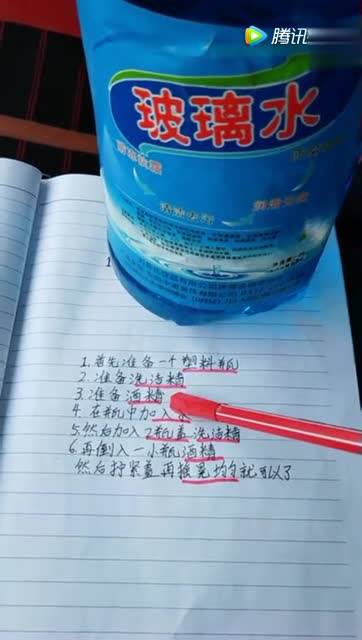 腾讯
玻璃水
清洁去污
1
1.首先准备一个塑料瓶
2.准备洗洁精
3.准备酒精
4.在瓶中加入水
5.然后加入2瓶盖洗洁精
6.再倒入一小瓶酒精
然后拧紧盖再摇晃均匀就可以了